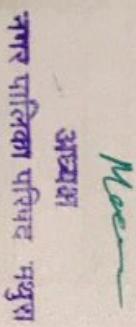 Moem
अध्यक्ष
नगर पालिका परिषद मथुरा